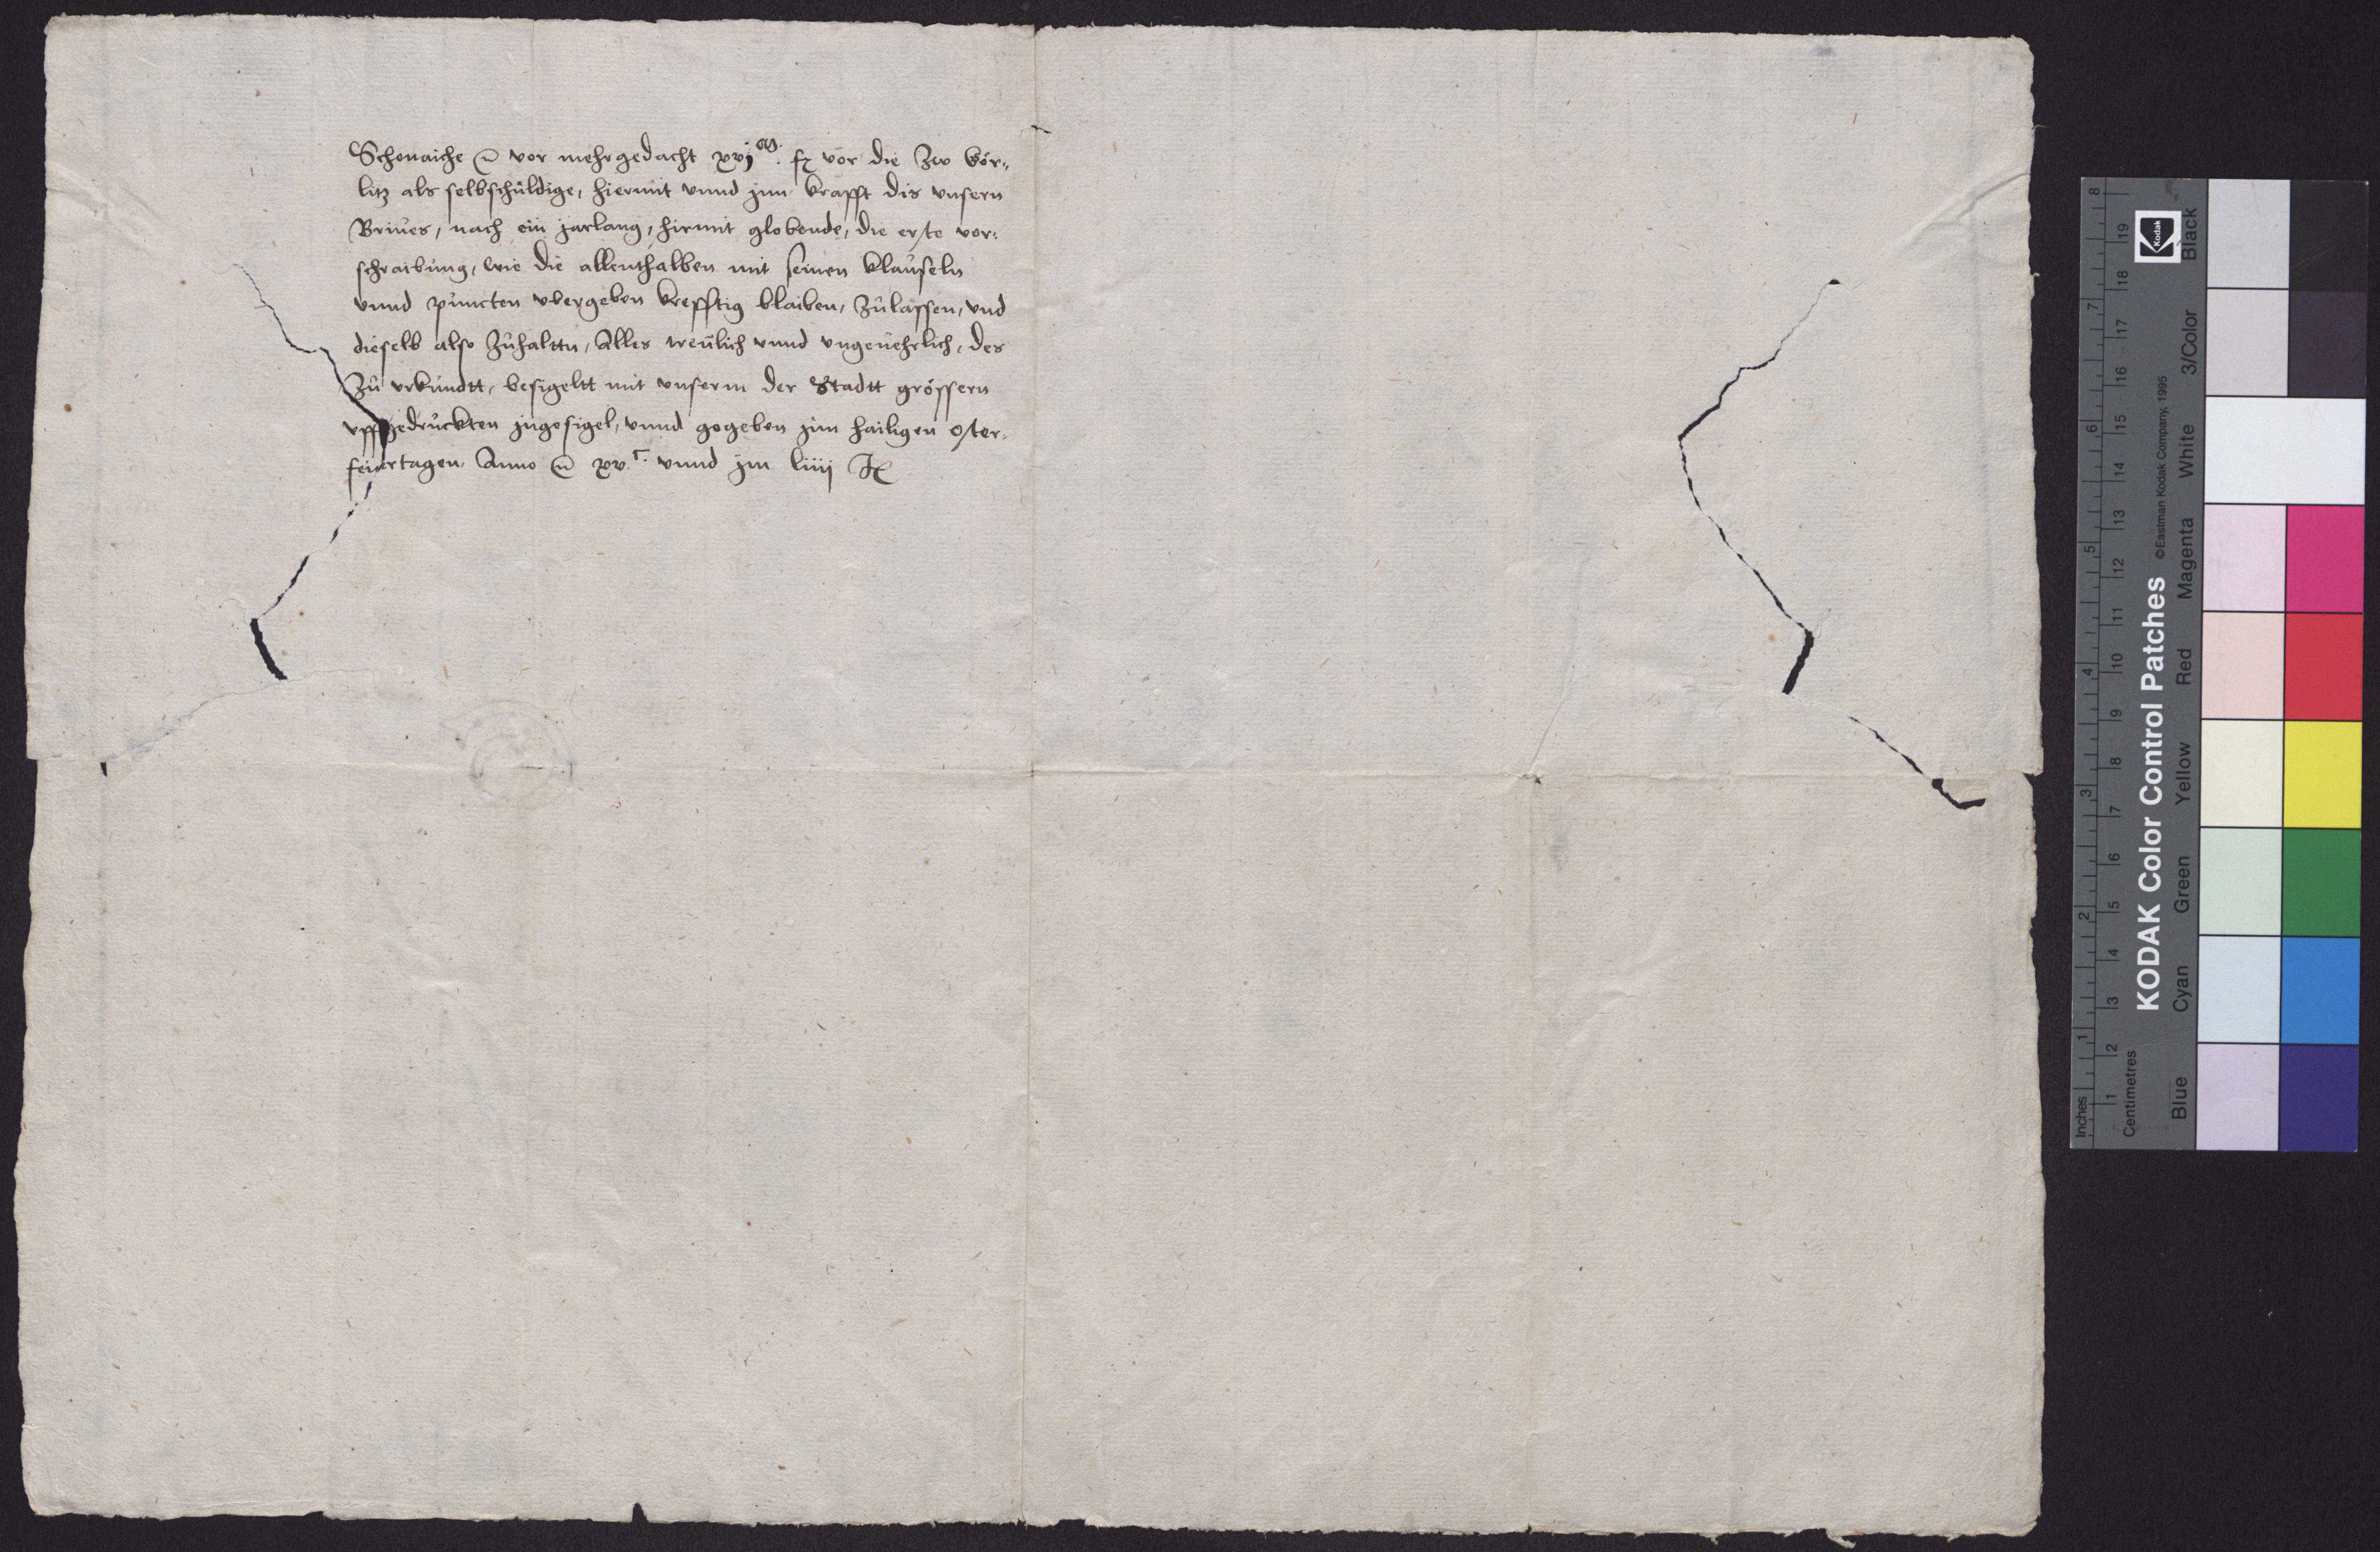 Schonaiche vor mehrgedacht xvj^m. fl vor die zw bör-
litz als selbschuldige, hiermit vnnd jnn krafft dis vnsern
Briues, nach ein jarlang, hirmit globende, die erste vor-
schraibung, wie die allenthalben mit seinen klauseln
vnnd puncten vbergeben krefftig blaiben, zulassen, vnd
dieselb also zuhaltten, Alles treulich vnnd vngeuehrlich, des
zu vrkundtt, besigeltt mit vnserm der Stadtt grössern
vffgedruckten jngesigel, vnnd gegeben jnn hailigen oster-
feiertagen. Anno xv. vnnd jm liiij
KODAK Color Control Patches
© Eastman Kodak Company, 1995
Kodak
Inches 1 2 3 4 5 6 7 8
Centimetres 1 2 3 4 5 6 7 8 9 10 11 12 13 14 15 16 17 18 19
Blue Cyan Green Yellow Red Magenta White 3/Color Black